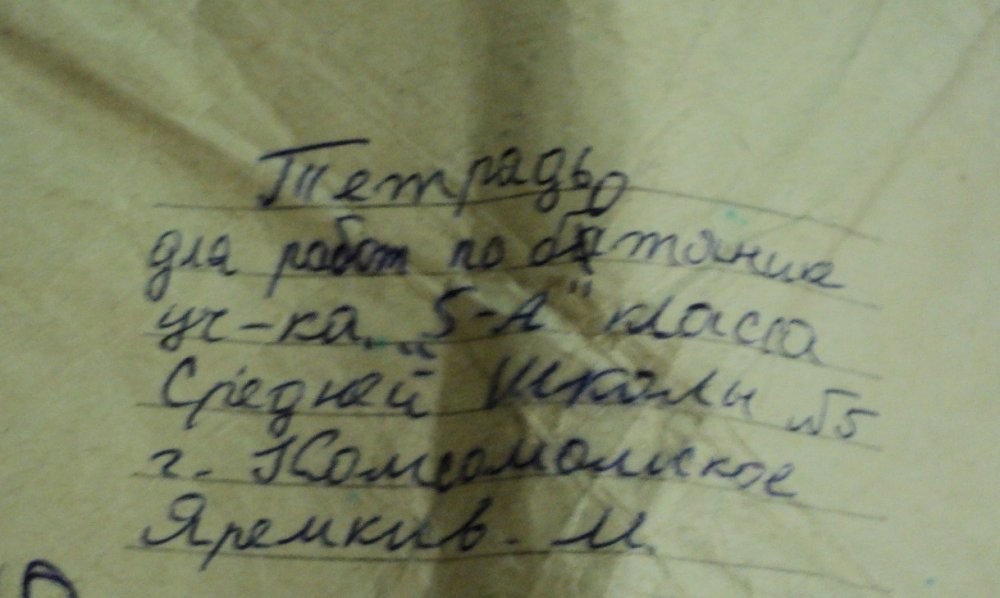 Тетрадь
для работ по ботанике
уч-ка „5-А" класса
Средней Школы №5
г. Комсомольское
Яремкив. М.